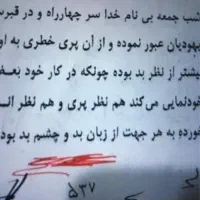 شب جمعه بی نام خدا سر چهارراه و در قبرس
یهودیان عبور نموده و از آن پری خطری به او
بیشتر از نظر بد بوده چونکه در کار خود بعض
خودنمایی می کند هم نظر پری و هم نظر انس
خورده به هر جهت از زبان بد و چشم بد بود
۵۳۷